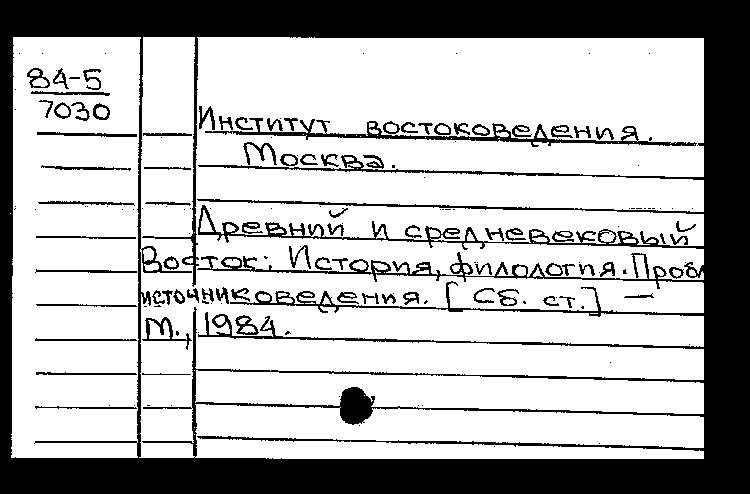 84-5
7030
Институт востоковедения.
Москва.
Древний и средневековый
Восток: История, филология. Пробл
источниковедения. [Сб. ст.] —
М., 1984.